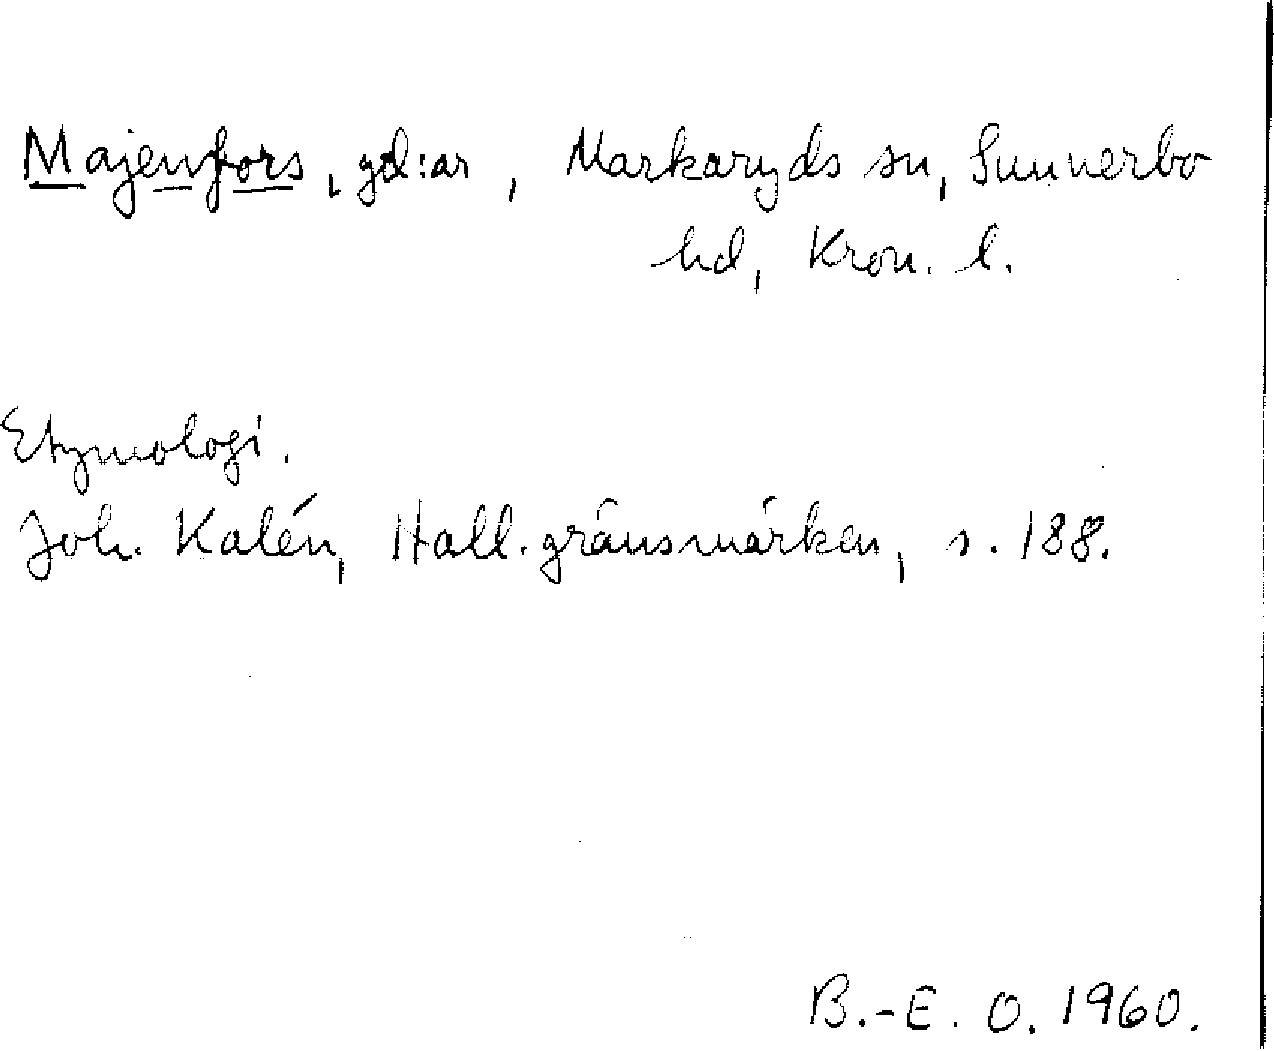 Majenfors, gd:ar, Markaryds sn, Sunnerbo
hd, Kron. l.
Etymologi.
Joh. Kalén, Hall. gränsmärken, s. 188.
B.-E. O. 1960.